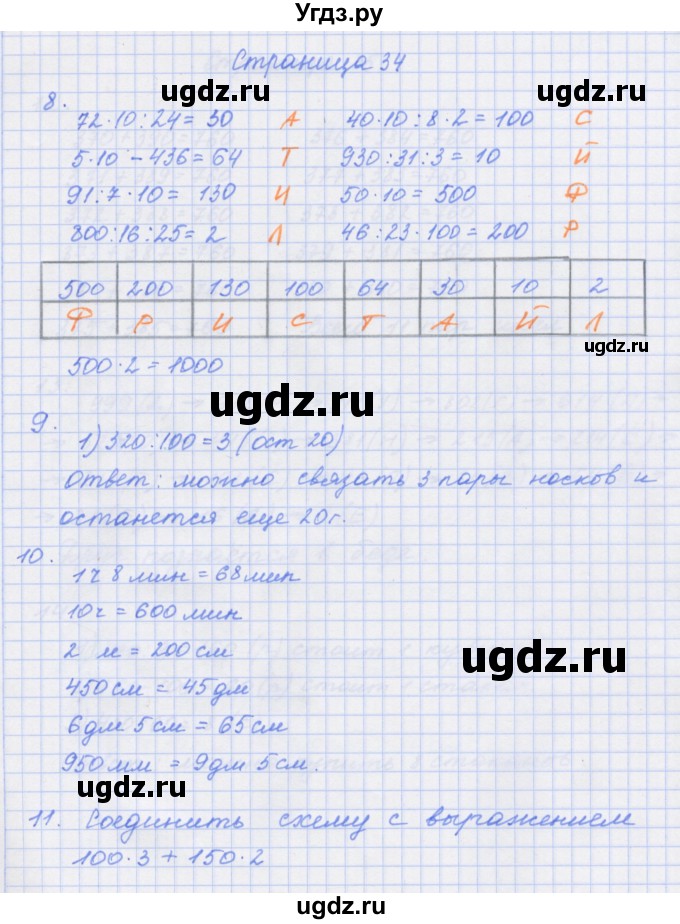 Угдз.ру
Страница 34
ugdz.ru ugdz.ru
8.
72·10:24=30 А 40·10:8·2=100 С
5·10-436=64 Т 930:31:3=10 Й
91:7·10=130 И 50·10=500 Ф
800:16:25=2 Л 46:23·100=200 Р
500 200 130 100 64 30 10 2
Ф Р И С Т А Й Л
ugdz.ru
500·2=1000
ugdz.ru
9.
1) 320:100=3 (ост 20)
Ответ: можно связать 3 пары носков и
останется еще 20г.
10.
1ч 8 мин = 68мин
10ч = 600 мин
2 м = 200 см
ugdz.ru
450см = 45дм
6дм 5см = 65см
950мм = 9дм 5см.
ugdz.ru
11. Соединить схему с выражением
100·3 + 150·2
ugdz.ru